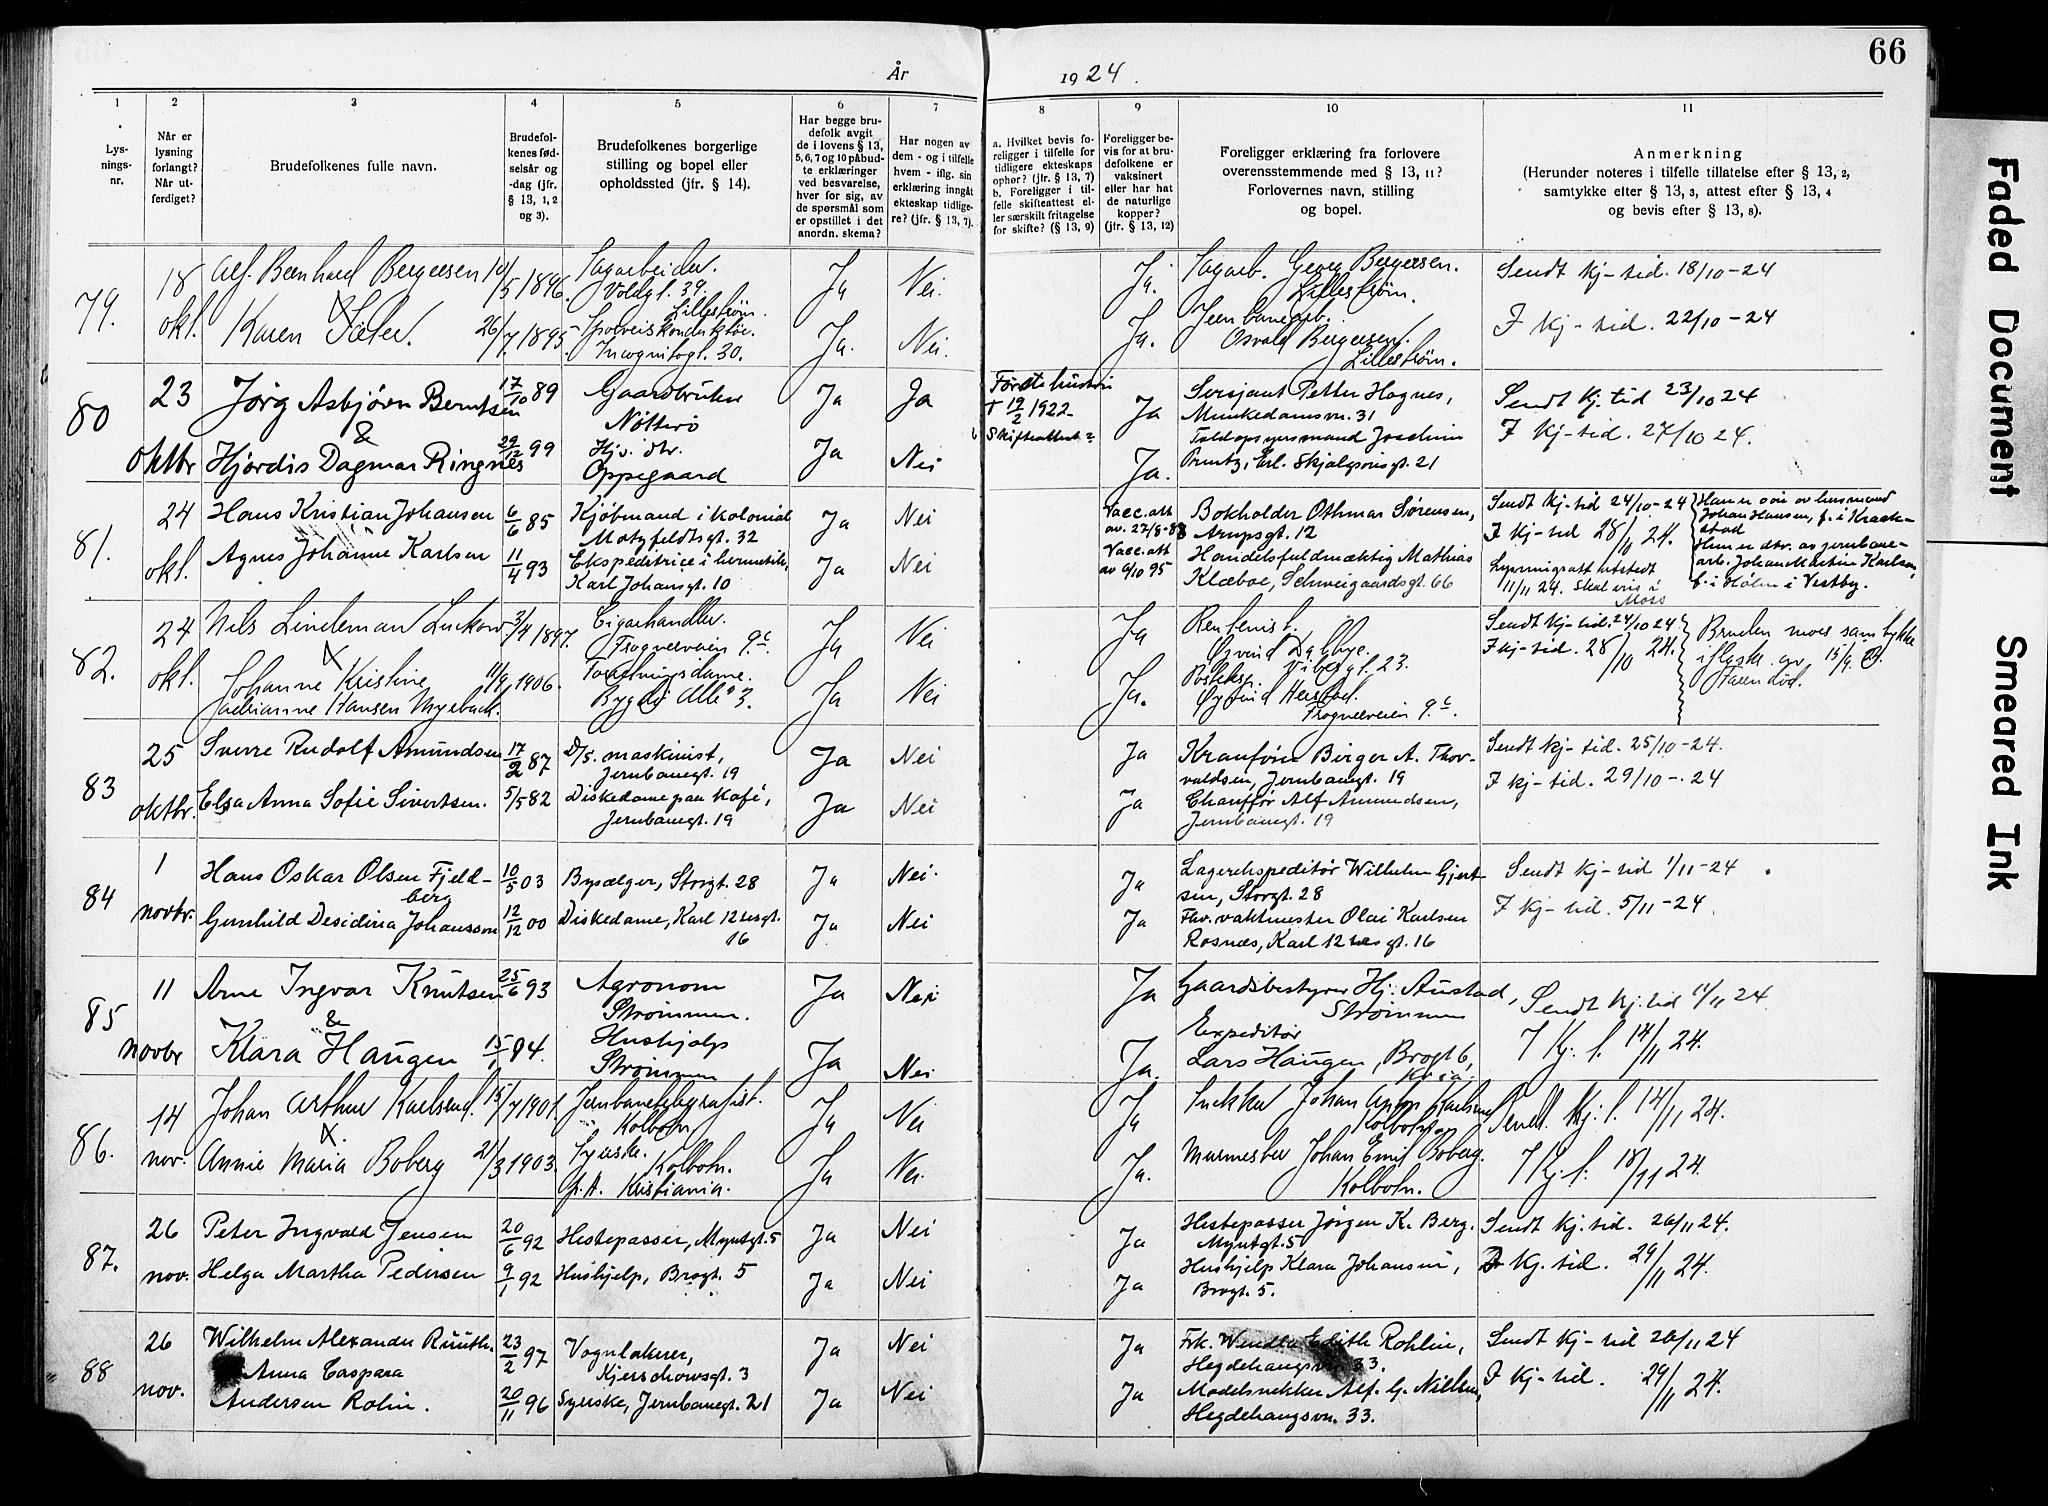 66
År 1924.
1 2 3 4 5 6 7 8 9 10 11
Lys-
nings-
nr.
Når er
lysning
forlangt?
Når ut-
ferdiget?
Brudefolkenes fulle navn.
Brudefol-
kenes fød-
selsår og
-dag (jfr.
§ 13, 1, 2
og 3).
Brudefolkenes borgerlige
stilling og bopel eller
opholdssted (jfr. § 14).
Har begge bru-
defolk avgit
de i lovens § 13,
5, 6, 7 og 10 påbud-
te erklæringer
ved besvarelse,
hver for sig, av
de spørsmål som
er opstillet i det
anordn. skema?
Har nogen av
dem - og i tilfelle
hvem - iflg. sin
erklæring inngått
ekteskap tidlige-
re? (jfr. § 13, 7).
a. Hvilket bevis fo-
religger i tilfelle for
tidligere ekteskaps
ophør? (jfr. § 13, 7)
b. Foreligger i til-
felle skifteattest el-
ler særskilt fritagelse
for skifte? (§ 13, 9)
Foreligger be-
vis for at bru-
defolkene er
vaksinert
eller har hat
de naturlige
kopper?
(jfr. § 13, 12)
Foreligger erklæring fra forlovere
overensstemmende med § 13, 11?
Forlovernes navn, stilling
og bopel.
Anmerkning
(Herunder noteres i tilfelle tillatelse efter § 13, 2,
samtykke efter § 13, 3, attest efter § 13, 4
og bevis efter § 13, 8).
79.
18
okt.
Alf Bernhard Bergersen
&
Karen Sæter.
10/5 1896.
26/7 1895
Sagarbeider.
Voldgt. 39.
Lillestrøm.
Sporveiskonduktør.
Incognitogt. 30.
Ja
Ja.
Nei.
Nei.
Ja.
Ja.
Sagarb. Georg Bergersen.
Lillestrøm.
Jernbanearb.
Osvald Bergersen.
Lillestrøm.
Sendt kj-tid. 18/10-24
I kj-tid. 22/10-24
80
23
oktbr
Jörg Asbjörn Berntsen
&
Hjördis Dagmar Ringnes
17/10 89
29/12 99
Gaardbruker
Nötterö
Hj.v. dtr.
Oppegaard
Ja
Ja
Ja
Nei
Første hustru
† 19/2 1922
Skifteattest
Ja
Ja.
Sersjant Petter Hognes,
Munkedamsvn. 31
Toldopsynsmand Joachim
Pruntz, Erl. Skjalgsonsgt. 21
Sendt kj-tid 23/10 24
I kj-tid. 27/10 24.
81.
24
okt.
Hans Kristian Johansen
Agnes Johanne Karlsen
6/6 85
11/4 93
Kjöbmand i kolonial
Motzfeldtsgt. 32
Ekspeditrice i hermetik,
Karl Johansgt. 10
Ja
Ja
Nei
Nei
Vacc.att
av. 27/8-88
Vacc.att
av 6/10 95
Bokholder Othmar Sørensen,
Arupsgt. 12
Handelsfuldmæktig Mathias
Klæboe, Schweigaardsgt. 66
Sendt kj-tid 24/10-24
I kj-tid 28/10 24.
Lysningsatt utstedt
11/11 24. Skal vies i
Moss
Han er søn av husmand
Johan Hansen, f. i Kraak-
stad
Hun er dtr. av jernbane-
arb. Johan Martin Karlsen,
f. i Hølen i Vestby.
82.
24
okt.
Nils Lindeman Luckow
&
Johanne Kristine
Jadrianne Hansen Myrbæck.
3/4 1897.
11/9 1906.
Cigarhandler.
Frognerveien 9c.
Forretningsdame.
Bygdö Allé 3.
Ja
Ja
Nei
Nei
Ja
Ja.
Øivind Dalbye.
Vibesgt. 23.
Posteksp.
Øyvind Herstad.
Frognerveien 9c.
Sendt kj-tid. 24/10 24
I kj-tid. 28/10 24.
Bruden mors samtykke
i skr. av 15/9. 24.
Faren död.
83
25
oktbr.
Sverre Rudolf Amundsen
Elsa Anna Sofie Sivertsen.
17/2 87
5/5 82
D/s. maskinist,
Jernbanegt. 19
Diskedame paa kafé,
Jernbanegt. 19
Ja
Ja
Nei
Nei
Ja
Ja
Kranförer Birger A. Thor-
valdsen, Jernbanegt. 19
Chauffør Alf Amundsen,
Jernbanegt. 19
Sendt kj-tid. 25/10-24.
I kj-tid. 29/10-24
84
1
novbr.
Hans Oskar Olsen Fjeld-
berg
Gunhild Desideria Johansson
10/5 03
12/12 00
Bysælger, Storgt. 28
Diskedame, Karl 12tesgt.
16
Ja
Ja
Nei.
Nei
Ja
Ja
Lagerekspeditör Wilhelm Gjert-
sen, Storgt. 28
Hav. vaktmester Olai Karlsen
Rosnæs, Karl 12tesgt. 16
Sendt kj-tid 1/11-24
I kj-tid. 5/11-24.
85
11
novbr
Arne Ingvar Knutsen
&
Klara Haugen
25/6 93
15/1 94.
Agronom
Strømmen.
Hushjelp
Strømmen
Ja
Ja
Nei
Nei
Ja
Ja.
Gaardsbestyrer Hj. Austad,
Strømmen
Expeditör
Lars Haugen, Brogt 6,
Kr.ia.
Sendt kj.tid 11/11 24.
I Kj. t. 14/11 24.
86.
14
nov.
Johan Arthur Karlsrud.
&
Annie Maria Boberg
15/7 1901.
21/3 1903.
Jernbanetelegrafist.
Kolbotn
Syerske.
Kolbotn.
p.t. Kristiania.
Ja
Ja
Nei
Nei.
Ja
Ja.
Snekker Johan Karlsrud
Kolbotn
Murmester Johan Emil Boberg.
Kolbotn.
Sendt. Kj. t. 14/11 24.
I Kj. t. 18/11 24.
87.
26
nov.
Peter Ingvald Jensen
Helga Martha Pedersen
20/6 92
9/1 92
Hestepasser, Myntgt. 5
Hushjelp, Brogt. 5
Ja
Ja
Nei
Nei
Ja
Ja
Hestepasser Jörgen K. Berg.
Myntgt. 5
Hushjelp Klara Johansen,
Brogt. 5.
Sendt kj.tid. 26/11 24.
I kj. tid. 29/11 24.
88
26
nov.
Wilhelm Alexander Ruuth.
Anna Caspara
Andersen Rolin.
23/2 97
20/11 96
Vognlakerer,
Kjerschowsgt. 3
Syerske, Jernbanegt. 21
Ja
Ja
Nei
Nei
Ja
Ja
Frk. Wendla Edith Rohlin,
Hegdehaugsvn 33.
Modelsnekker Alf. G. Nilsen,
Hegdehaugsvn. 33.
Sendt kj-tid 26/11 24
I kj-tid. 29/11 24.
Faded Document
Smeared Ink